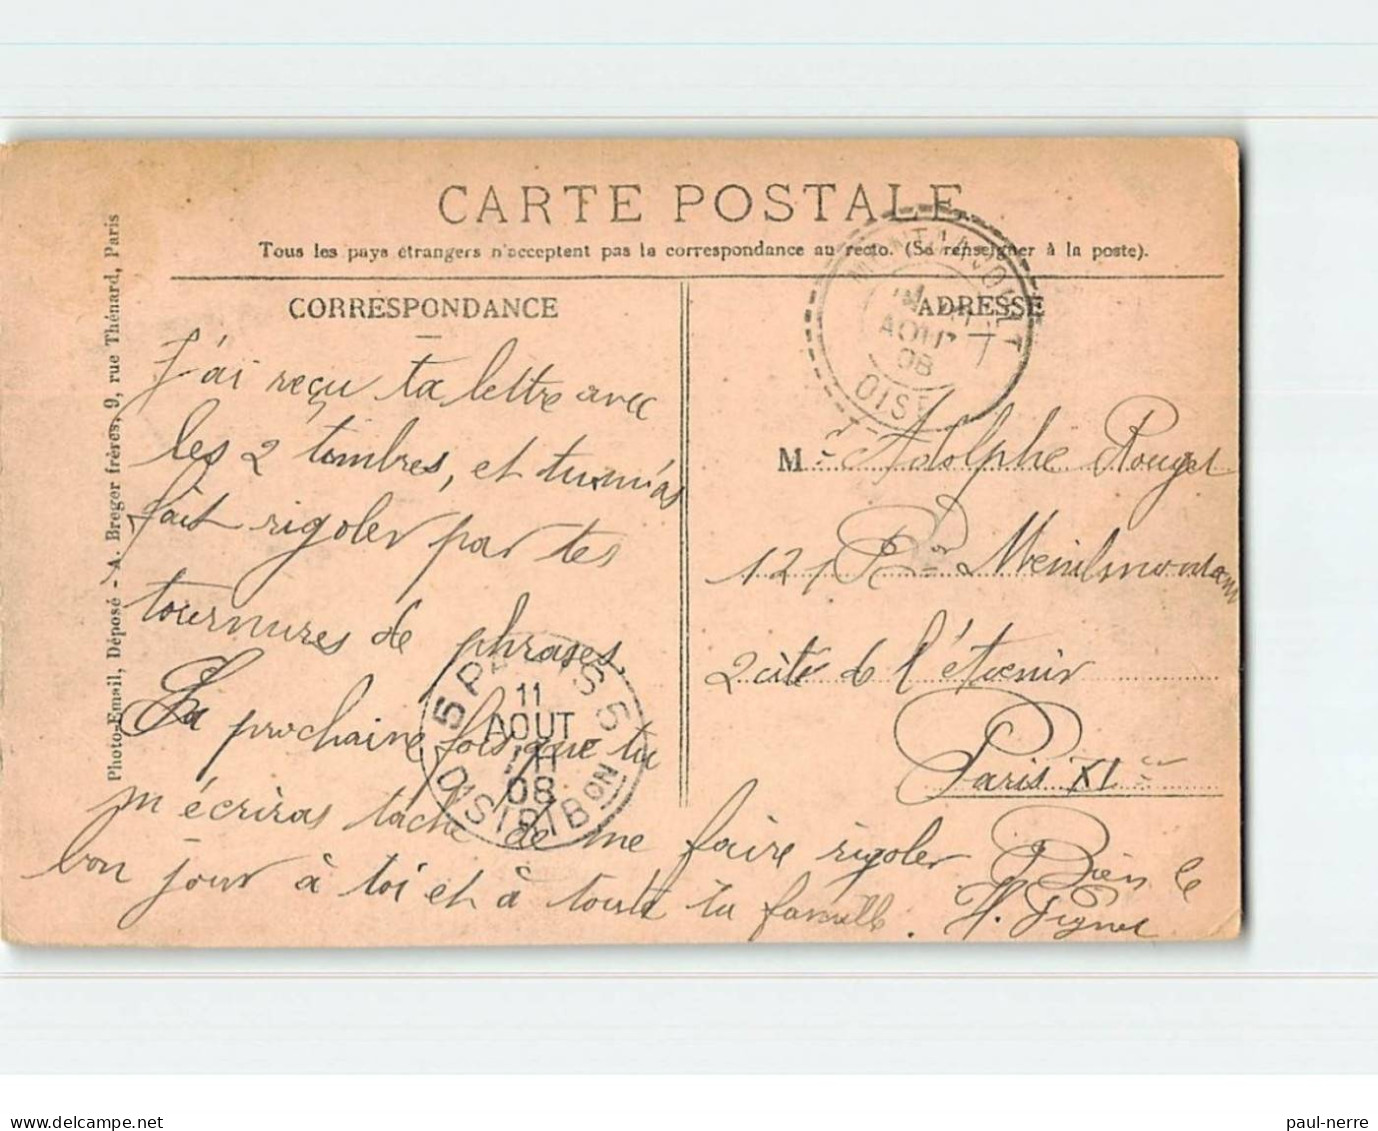 CARTE POSTALE
Tous les pays étrangers n'acceptent pas la correspondance au recto. (Se renseigner à la poste).
CORRESPONDANCE
J'ai reçu ta lettre avec
les 2 timbres, et tu m'as
fait rigoler par tes
tournures de phrases.
La prochaine fois que tu
m'écriras tache de me faire rigoler Bien le
bon jour à toi et à toute ta famille. H.
ADRESSE
M Adolphe Rouget
121 Rue Menilmontant
2 cité de l'étoenir
Paris XI
Photo-Email, Déposé - A. Breger frères, 9, rue Thénard, Paris
AOUT
08
OISE
5 PARIS 5
11
AOUT
08
DISTRIBON
delcampe.net
paul-nerre